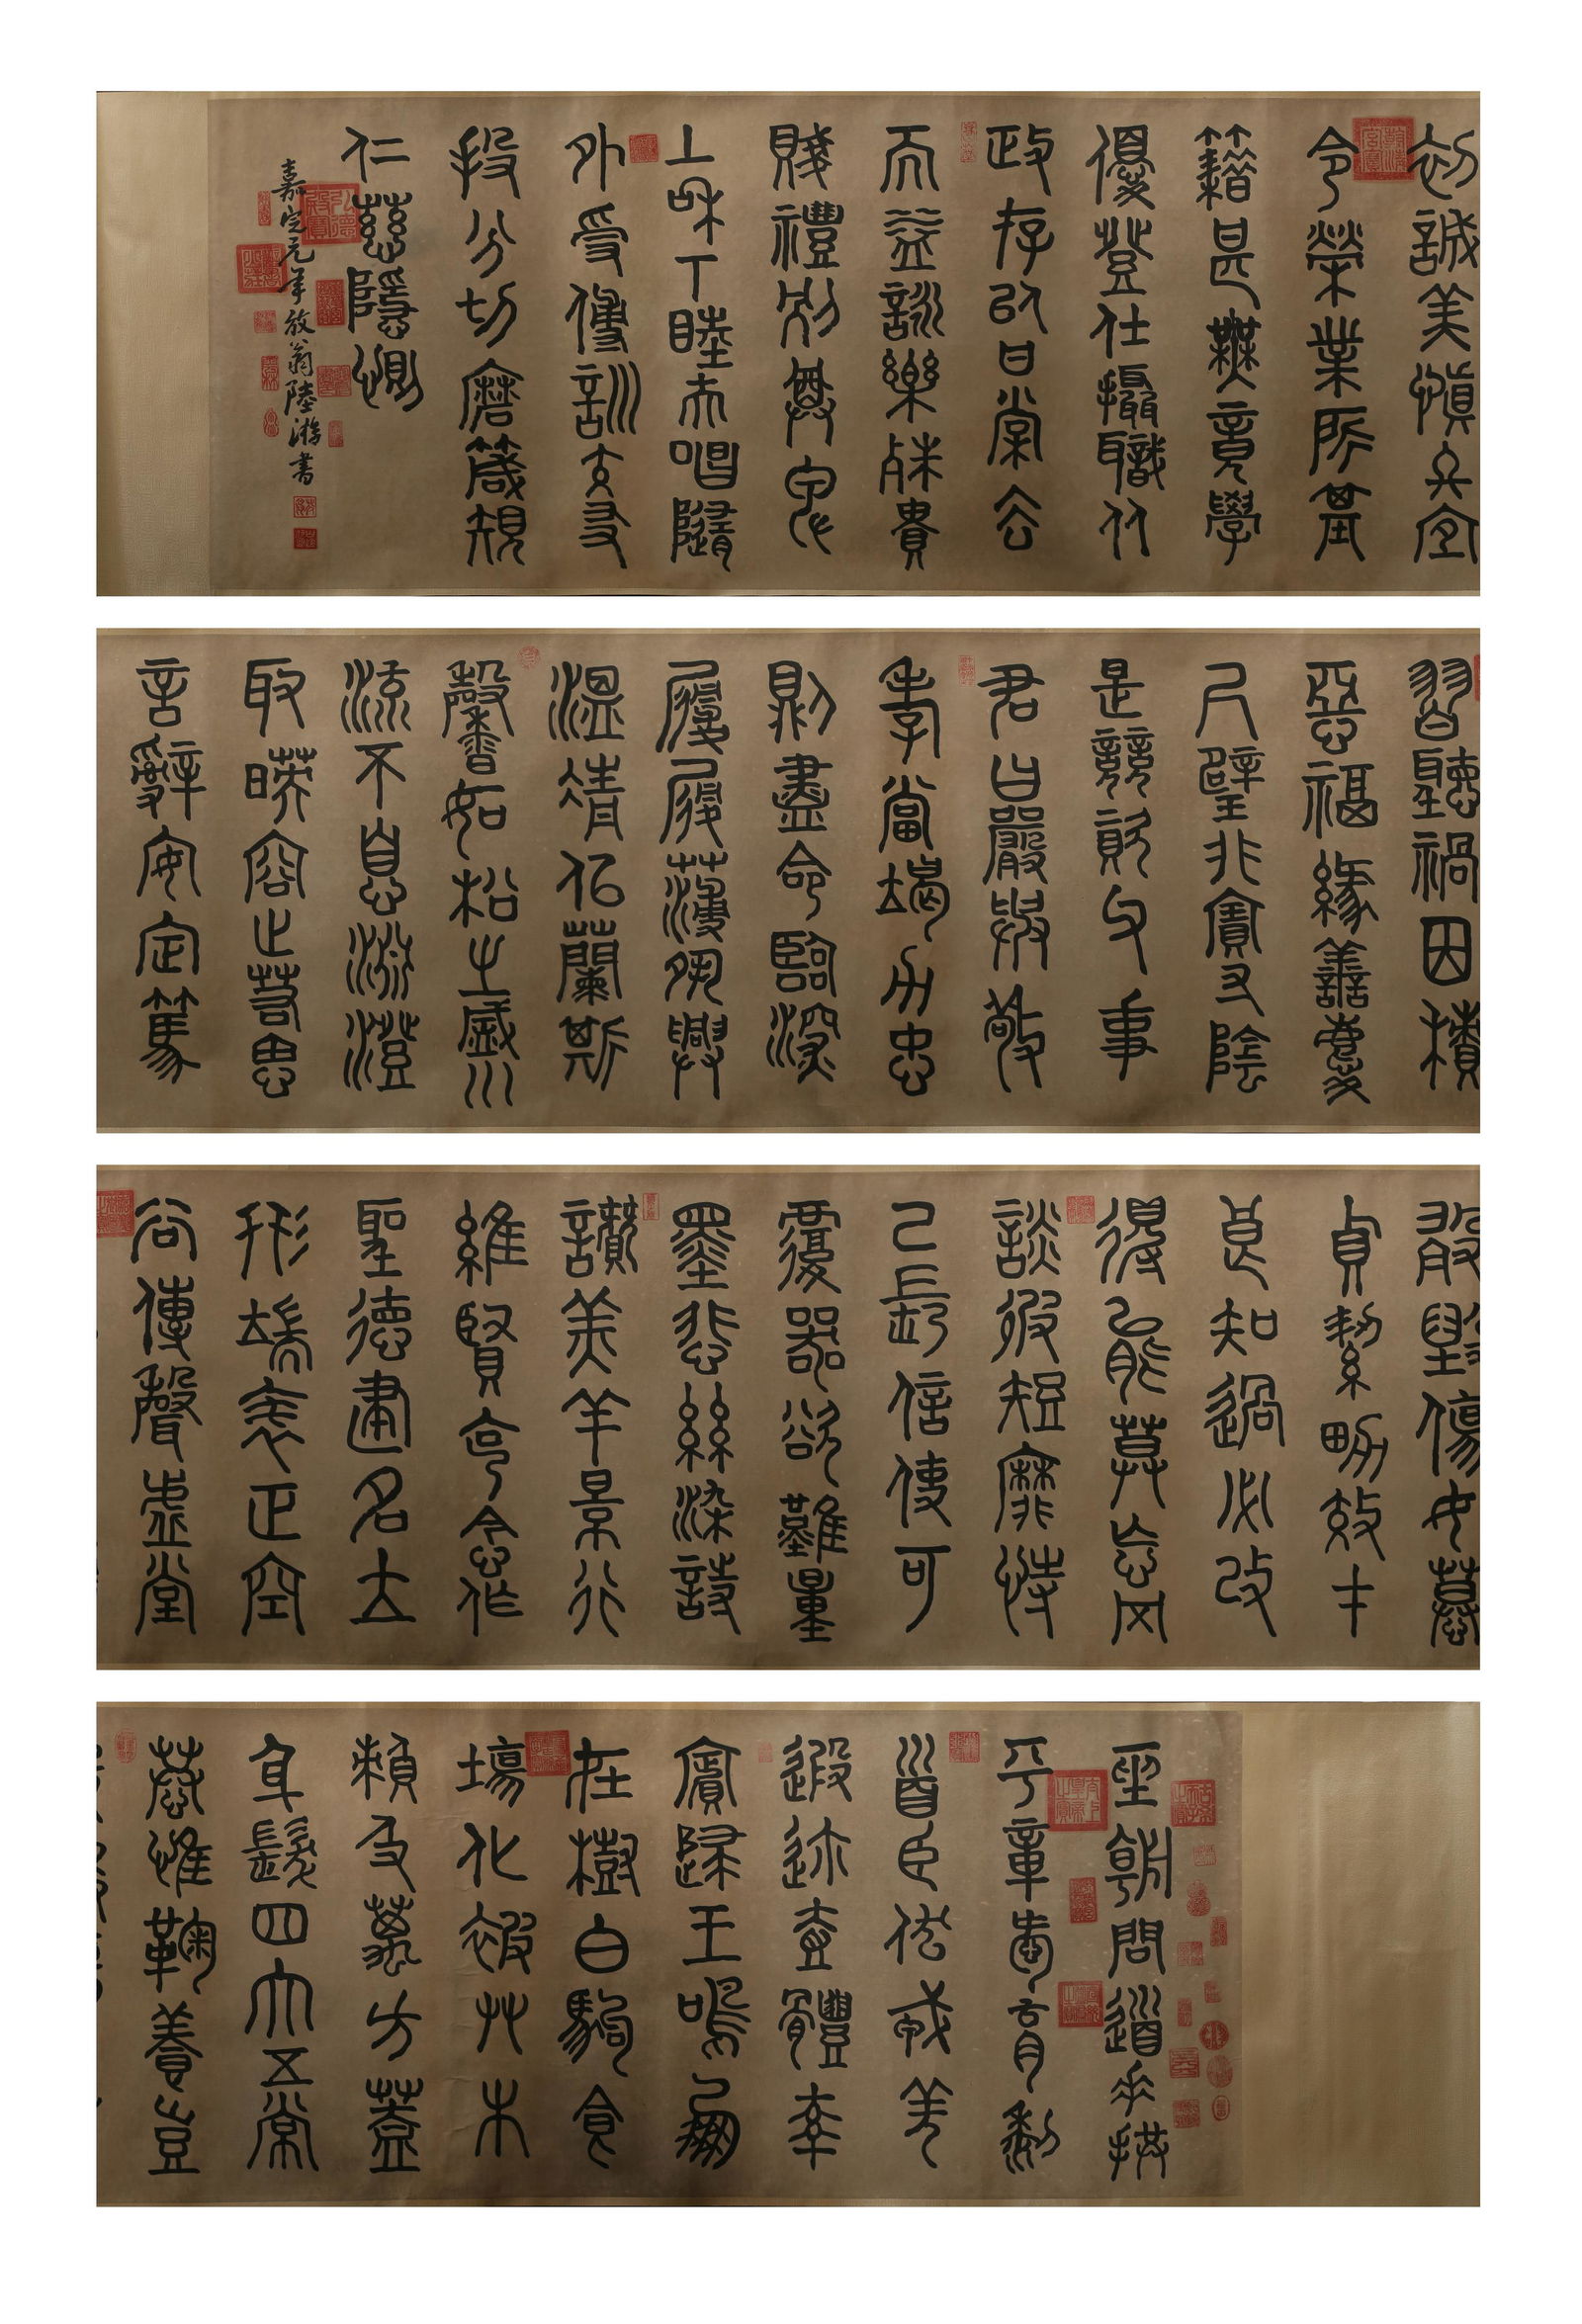 坐朝問道垂拱
平章愛育黎
首臣伏戎羌
遐邇壹體率
賓歸王鳴鳳
在樹白駒食
場化被草木
賴及萬方蓋
身髮四大五常
恭惟鞠養豈
敢毀傷女慕
貞絜男效才
良知過必改
得能莫忘罔
談彼短靡恃
己長信使可
覆器欲難量
墨悲絲染詩
讚羔羊景行
維賢克念作
聖德建名立
形端表正空
谷傳聲虛堂
習聽禍因積
惡福緣善慶
尺璧非寶寸陰
是競資父事
君曰嚴與敬
孝當竭力忠
則盡命臨深
履履薄夙興
溫清似蘭斯
馨如松之盛川
流不息淵澄
取映容止若思
言辭安定篤
初誠美慎終宜
令榮業所基
籍甚無竟學
優登仕攝職從
政存以甘棠去
而益詠樂殊貴
賤禮別尊卑
上和下睦夫唱隨
外受傅訓入奉
投分切磨箴規
仁慈隱惻
嘉定元年放翁陸游書